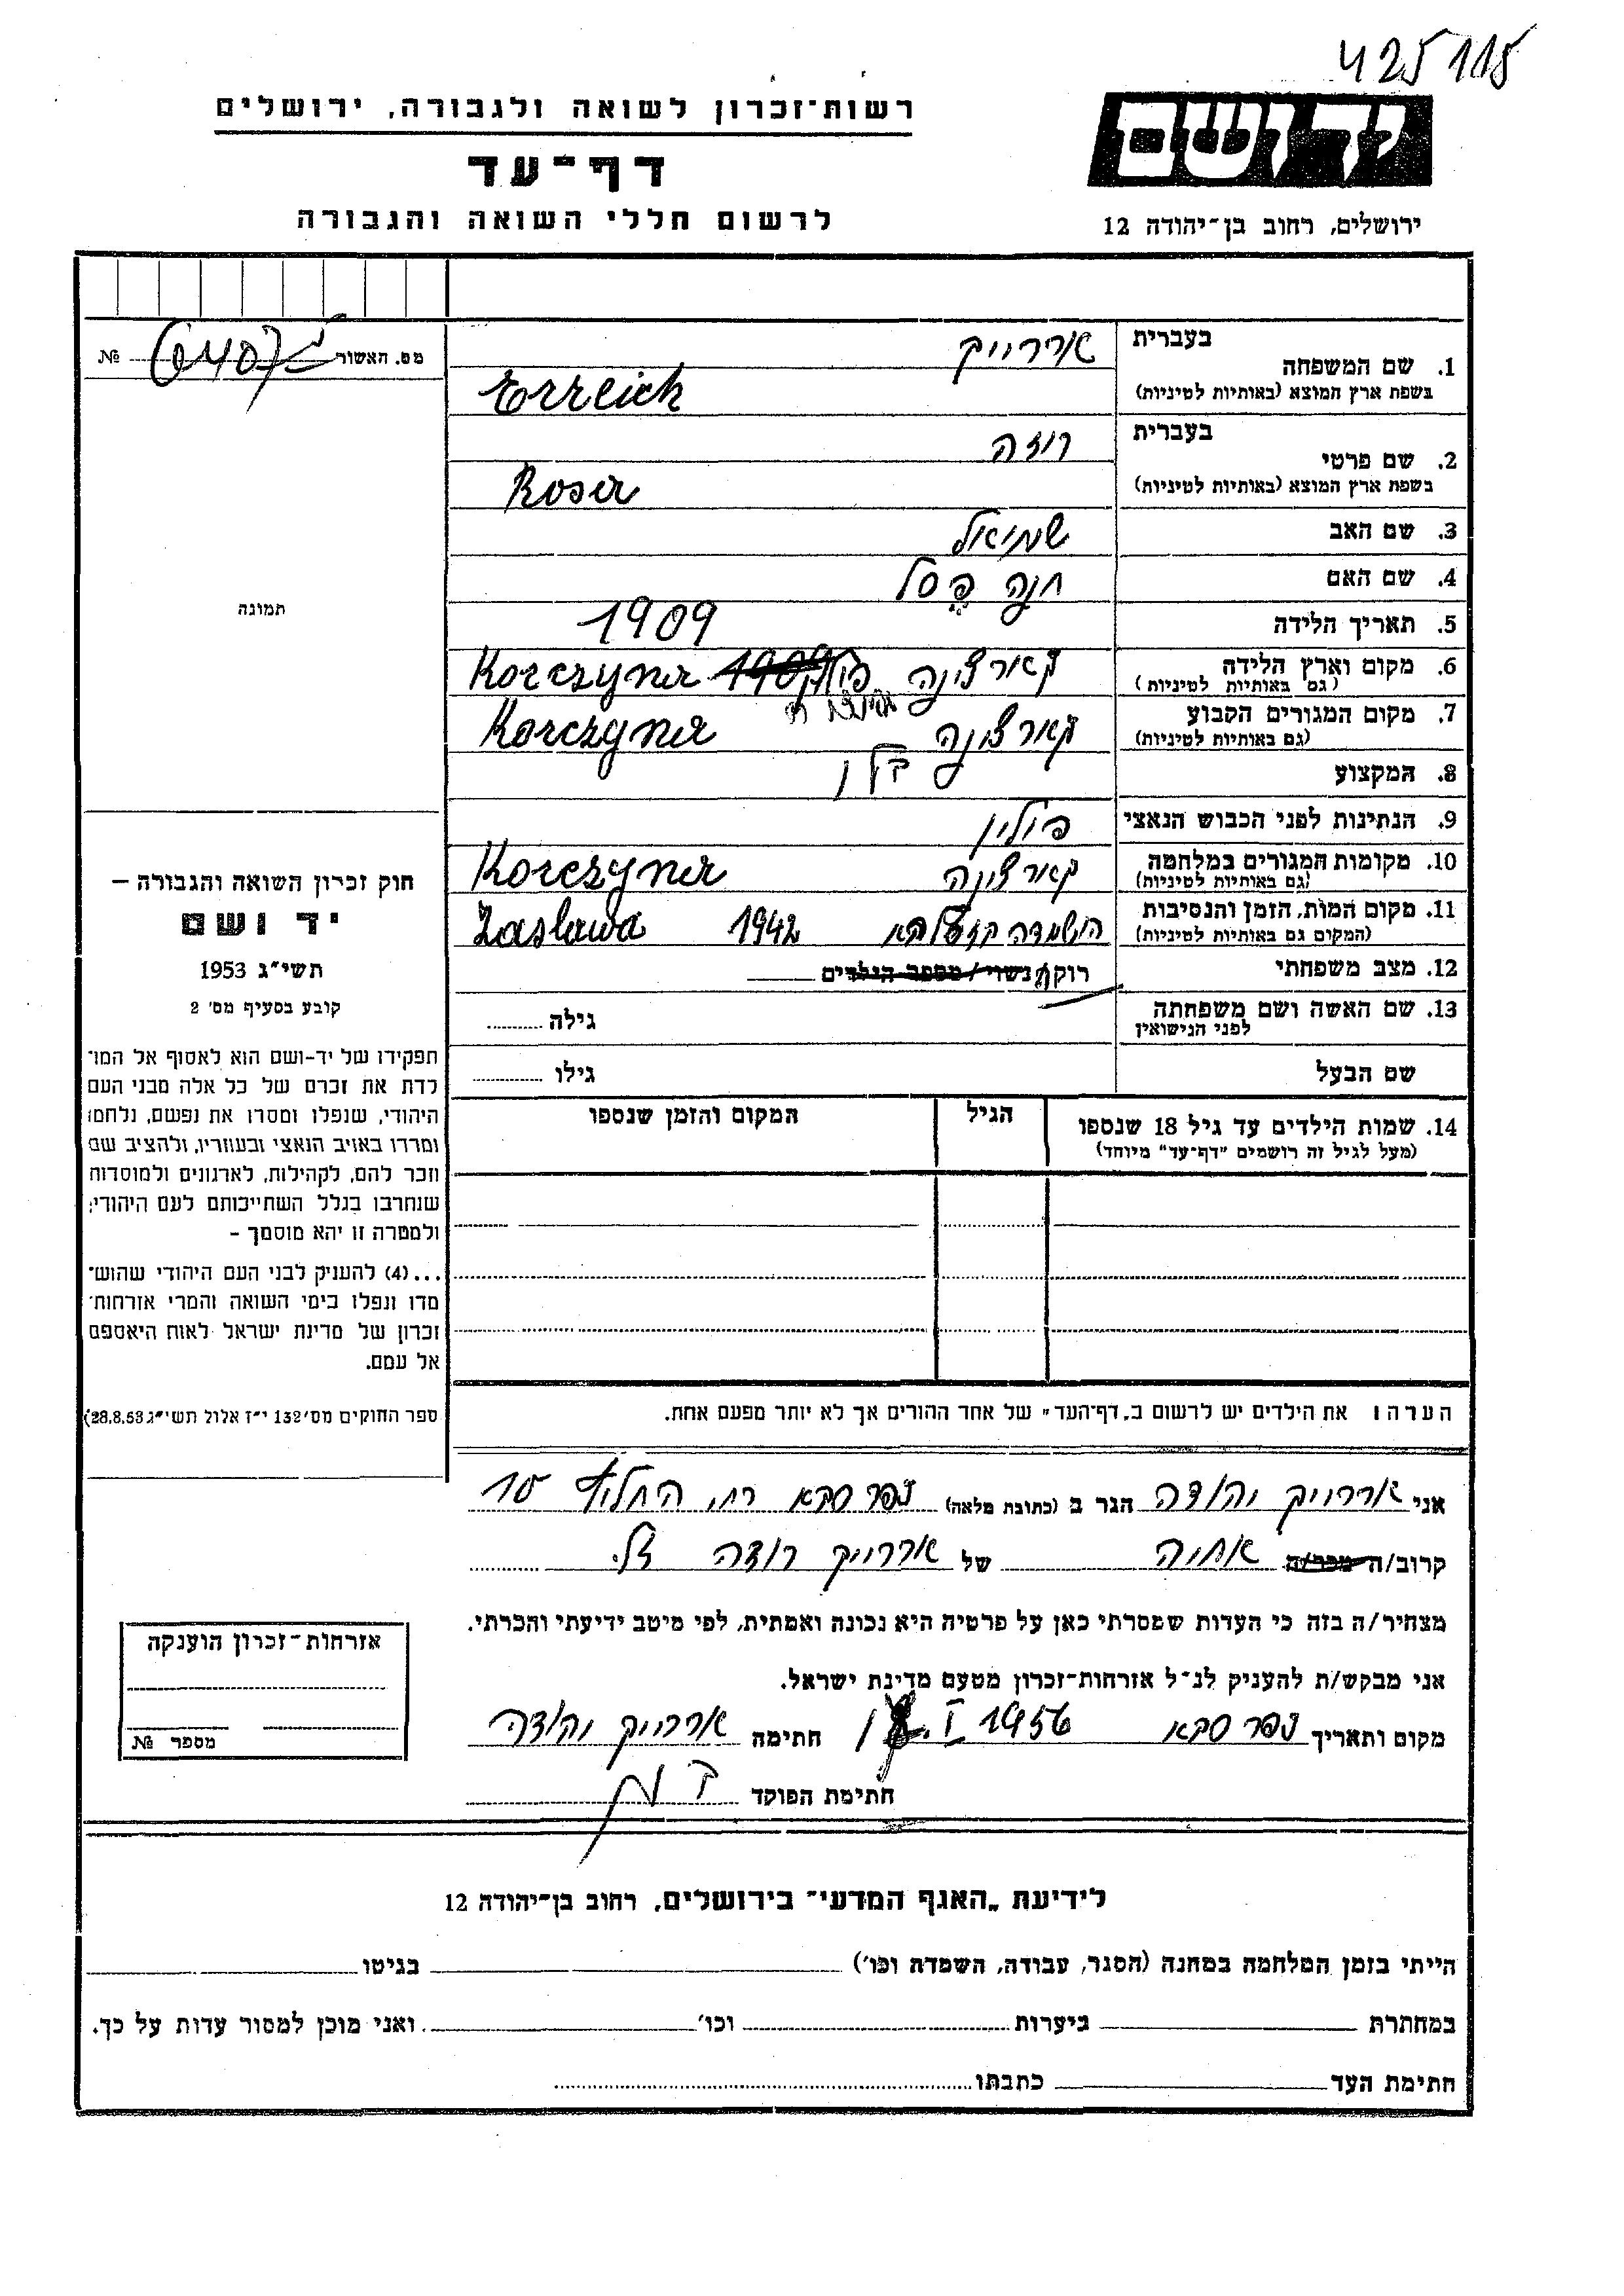 425115
רשות־זכרון לשואה ולגבורה, ירושלים
דף־עד
לרשום חללי השואה והגבורה
יד ושם
ירושלים, רחוב בן־יהודה 12
מס. האשור № 6407
1. שם המשפחה
בעברית ארררייך
בשפת ארץ המוצא (באותיות לטיניות) Erreich
2. שם פרטי
בעברית רוזה
בשפת ארץ המוצא (באותיות לטיניות) Roser
3. שם האב שמואל
4. שם האם חנה פֶּסל
5. תאריך הלידה 1909
6. מקום וארץ הלידה קארצינה Korczyner
(גם באותיות לטיניות)
7. מקום המגורים הקבוע קארצינה Korczyner
(גם באותיות לטיניות)
8. המקצוע
9. הנתינות לפני הכבוש הנאצי פולין
10. מקומות המגורים במלחמה קארצינה Korczyner
(גם באותיות לטיניות)
11. מקום המות, הזמן והנסיבות הושמדה 1942 Zasława
(המקום גם באותיות לטיניות)
12. מצב משפחתי רוק/נשוי/מספר הילדים
13. שם האשה ושם משפחתה לפני הנישואין גילה
שם הבעל גילו
14. שמות הילדים עד גיל 18 שנספו הגיל המקום והזמן שנספו
(מעל לגיל זה רושמים "דף־עד" מיוחד)
תמונה
חוק זכרון השואה והגבורה –
יד ושם
תשי״ג 1953
קובע בסעיף מס׳ 2
תפקידו של יד-ושם הוא לאסוף אל המו־
לדת את זכרם של כל אלה מבני העם
היהודי, שנפלו ומסרו את נפשם, נלחמו
ומרדו באויב הנאצי ובעוזריו, ולהציב שם
וזכר להם, לקהילות, לארגונים ולמוסדות
שנחרבו בגלל השתייכותם לעם היהודי;
ולמטרה זו יהא מוסמך –
...(4) להעניק לבני העם היהודי שהוש־
מדו ונפלו בימי השואה והמרי אזרחות־
זכרון של מדינת ישראל לאות היאספם
אל עמם.
(ספר החוקים מס׳ 132 י״ז אלול תשי״ג 28.8.53)
הערה: את הילדים יש לרשום ב„דף־העד״ של אחד ההורים אך לא יותר מפעם אחת.
אני ארררייך יהודה הגר ב (כתובת מלאה) כפר סבא רח׳ החליץ 10
קרוב/ה מכר/ה אחיה של ארררייך רוזה ז״ל.
מצהיר/ה בזה כי העדות שמסרתי כאן על פרטיה היא נכונה ואמתית, לפי מיטב ידיעתי והכרתי.
אני מבקש/ת להעניק לנ״ל אזרחות־זכרון מטעם מדינת ישראל.
מקום ותאריך כפר סבא 1956 חתימה ארררייך יהודה
חתימת הפוקד
אזרחות־זכרון הוענקה
מספר №
לידיעת „האגף המדעי״ בירושלים, רחוב בן־יהודה 12
הייתי בזמן המלחמה במחנה (הסגר, עבודה, השמדה וכו׳) בגיטו
במחתרת ביערות וכו׳ ואני מוכן למסור עדות על כך.
חתימת העד כתבתו